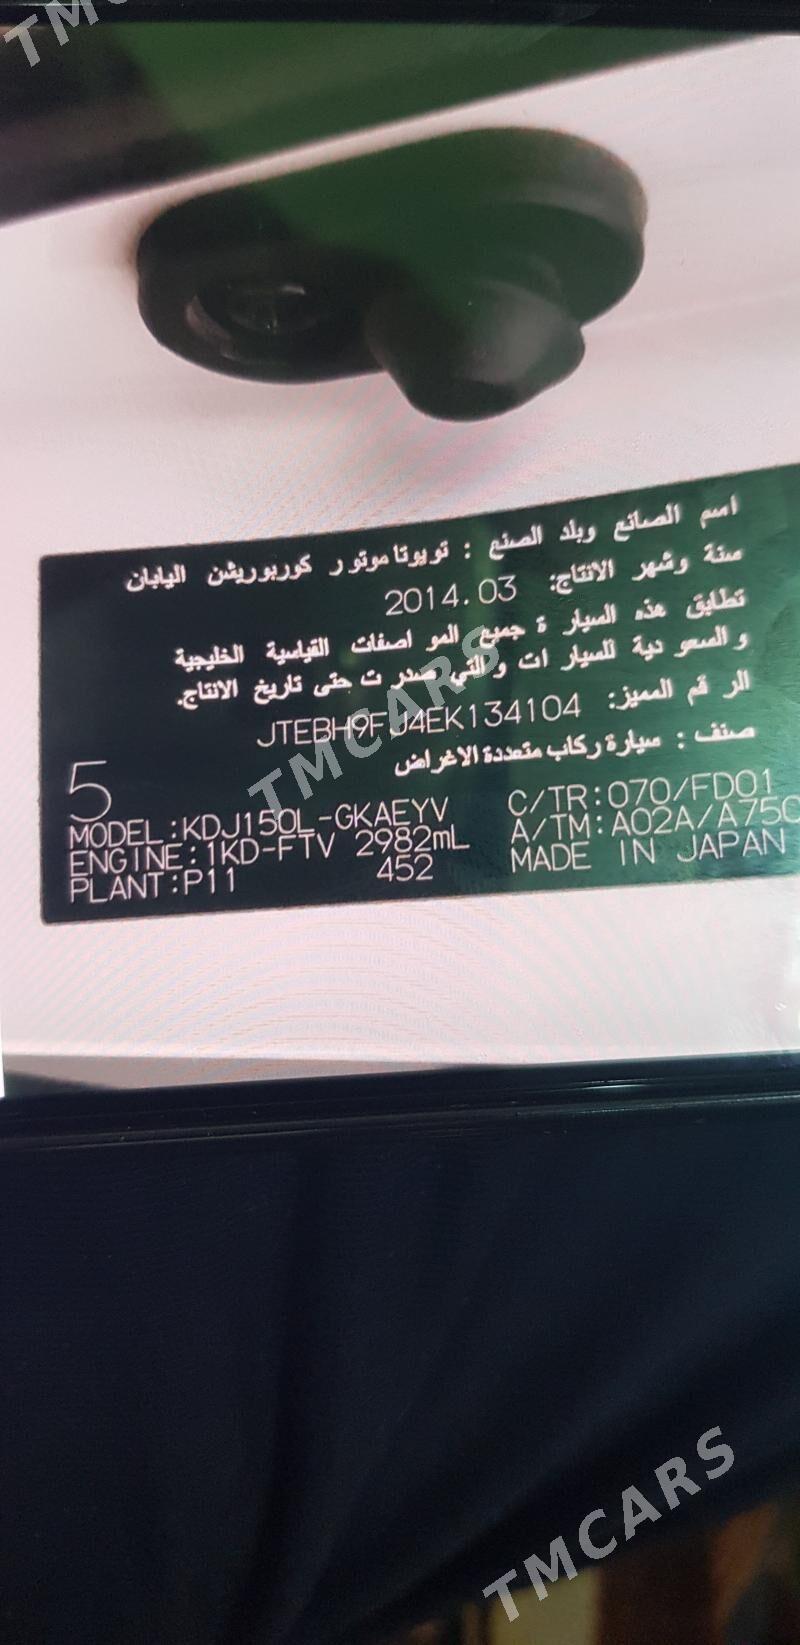 TMCARS
اسم الصانع وبلد الصنع : تويوتا موتور كوربوريشن اليابان
سنة وشهر الانتاج: 2014.03
تطابق هذه السيار ة جميع المو اصفات القياسية الخليجية
و السعو دية للسيار ات و التي صدر ت حتى تاريخ الانتاج.
الر قم المميز: JTEBH9FJ4EK134104
صنف : سيارة ركاب متعددة الاغراض
5
MODEL:KDJ150L-GKAEYV C/TR:070/FD01
ENGINE:1KD-FTV 2982mL A/TM:A02A/A750
PLANT:P11 452 MADE IN JAPAN
TMCARS
TMCARS